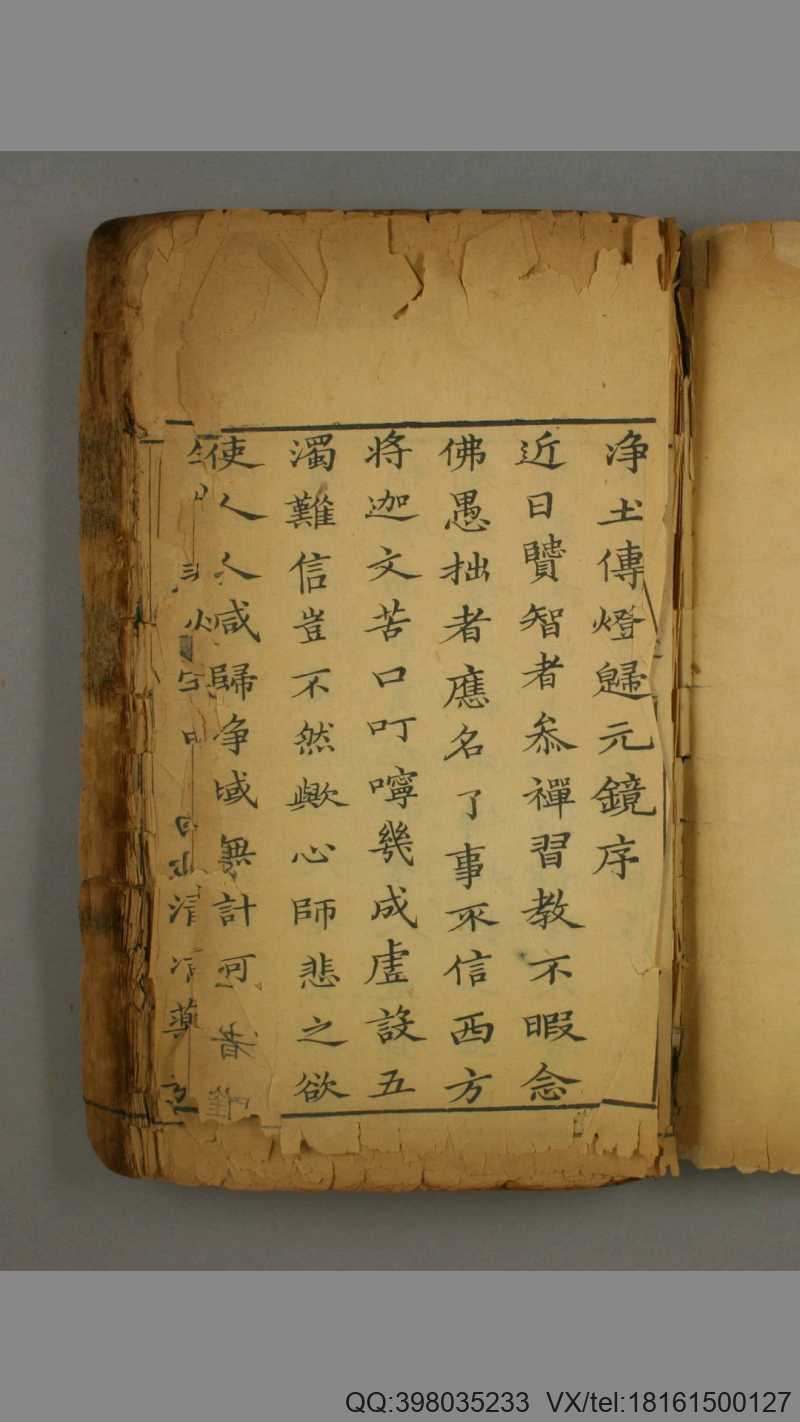 净土傳燈歸元鏡序
近日贒智者叅禪習教不暇念
佛愚拙者應名了事不信西方
將迦文苦口叮嚀幾成虛設五
濁難信豈不然歟心師悲之欲
使人人咸歸净域無計可者
清
QQ:398035233 VX/tel:18161500127